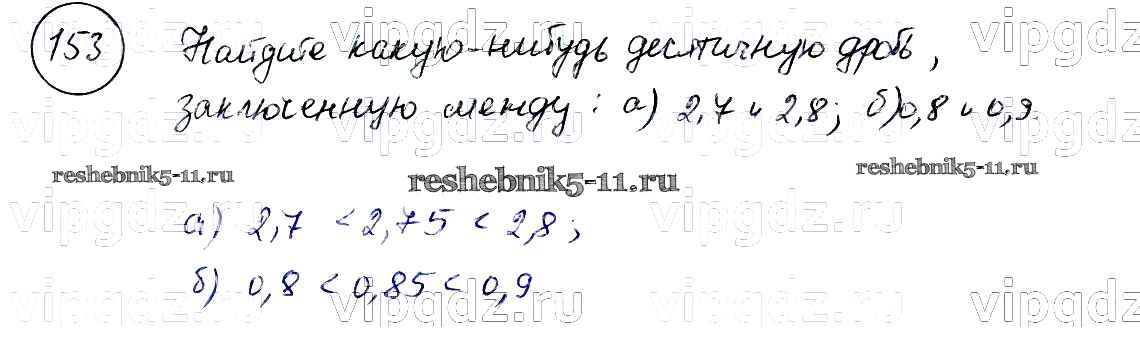 vipgdz vipgdz vipgdz vipgdz
153 Найдите какую-нибудь десятичную дробь,
заключенную между: а) 2,7 и 2,8; б) 0,8 и 0,9.
vipgdz vipgdz vipgdz vipgdz
reshebnik5-11.ru reshebnik5-11.ru reshebnik5-11.ru
а) 2,7 < 2,75 < 2,8;
vipgdz vipgdz vipgdz vipgdz
б) 0,8 < 0,85 < 0,9
vipgdz vipgdz vipgdz vipgdz